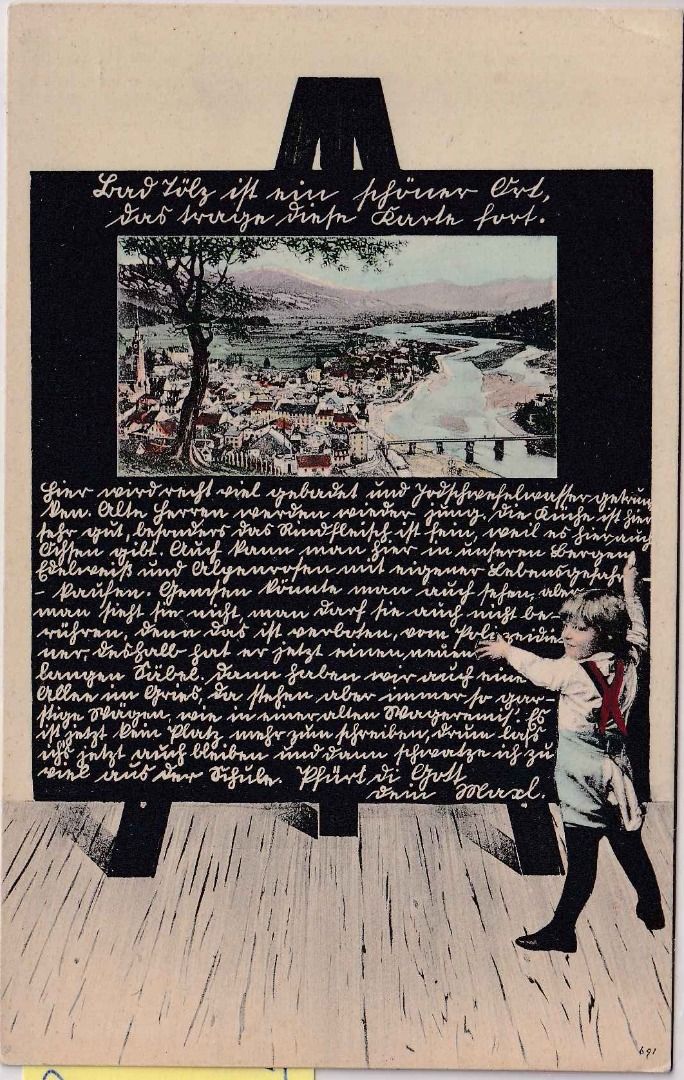 Bad Tölz ist ein schöner Ort,
das trage diese Karte fort.
Hier wird recht viel gebadet und Jodschwefelwasser getrun-
ken. Alte Herren werden wieder jung. Die Küche ist hier
sehr gut, besonders das Rindfleisch ist fein, weil es hier auch
Ochsen gibt. Auch kann man hier in unseren Bergen
Edelweiß und Alpenrosen mit eigener Lebensgefahr
- kaufen. Gemsen könnte man auch sehen, aber
man sieht sie nicht, man darf sie auch nicht be-
rühren, denn das ist verboten, vom Polizeidie
ner, deshalb hat er jetzt einen neuen
langen Säbel. Dann haben wir auch eine
Allee im Gries, da stehen aber immer so gar-
stige Wägen, wie in einer alten Wageremis. Es
ist jetzt kein Platz mehr zum schreiben, drum lass
ich's jetzt auch bleiben und dann schwatze ich zu
viel aus der Schule. Pfürt di Gott
dein Maxl.
691